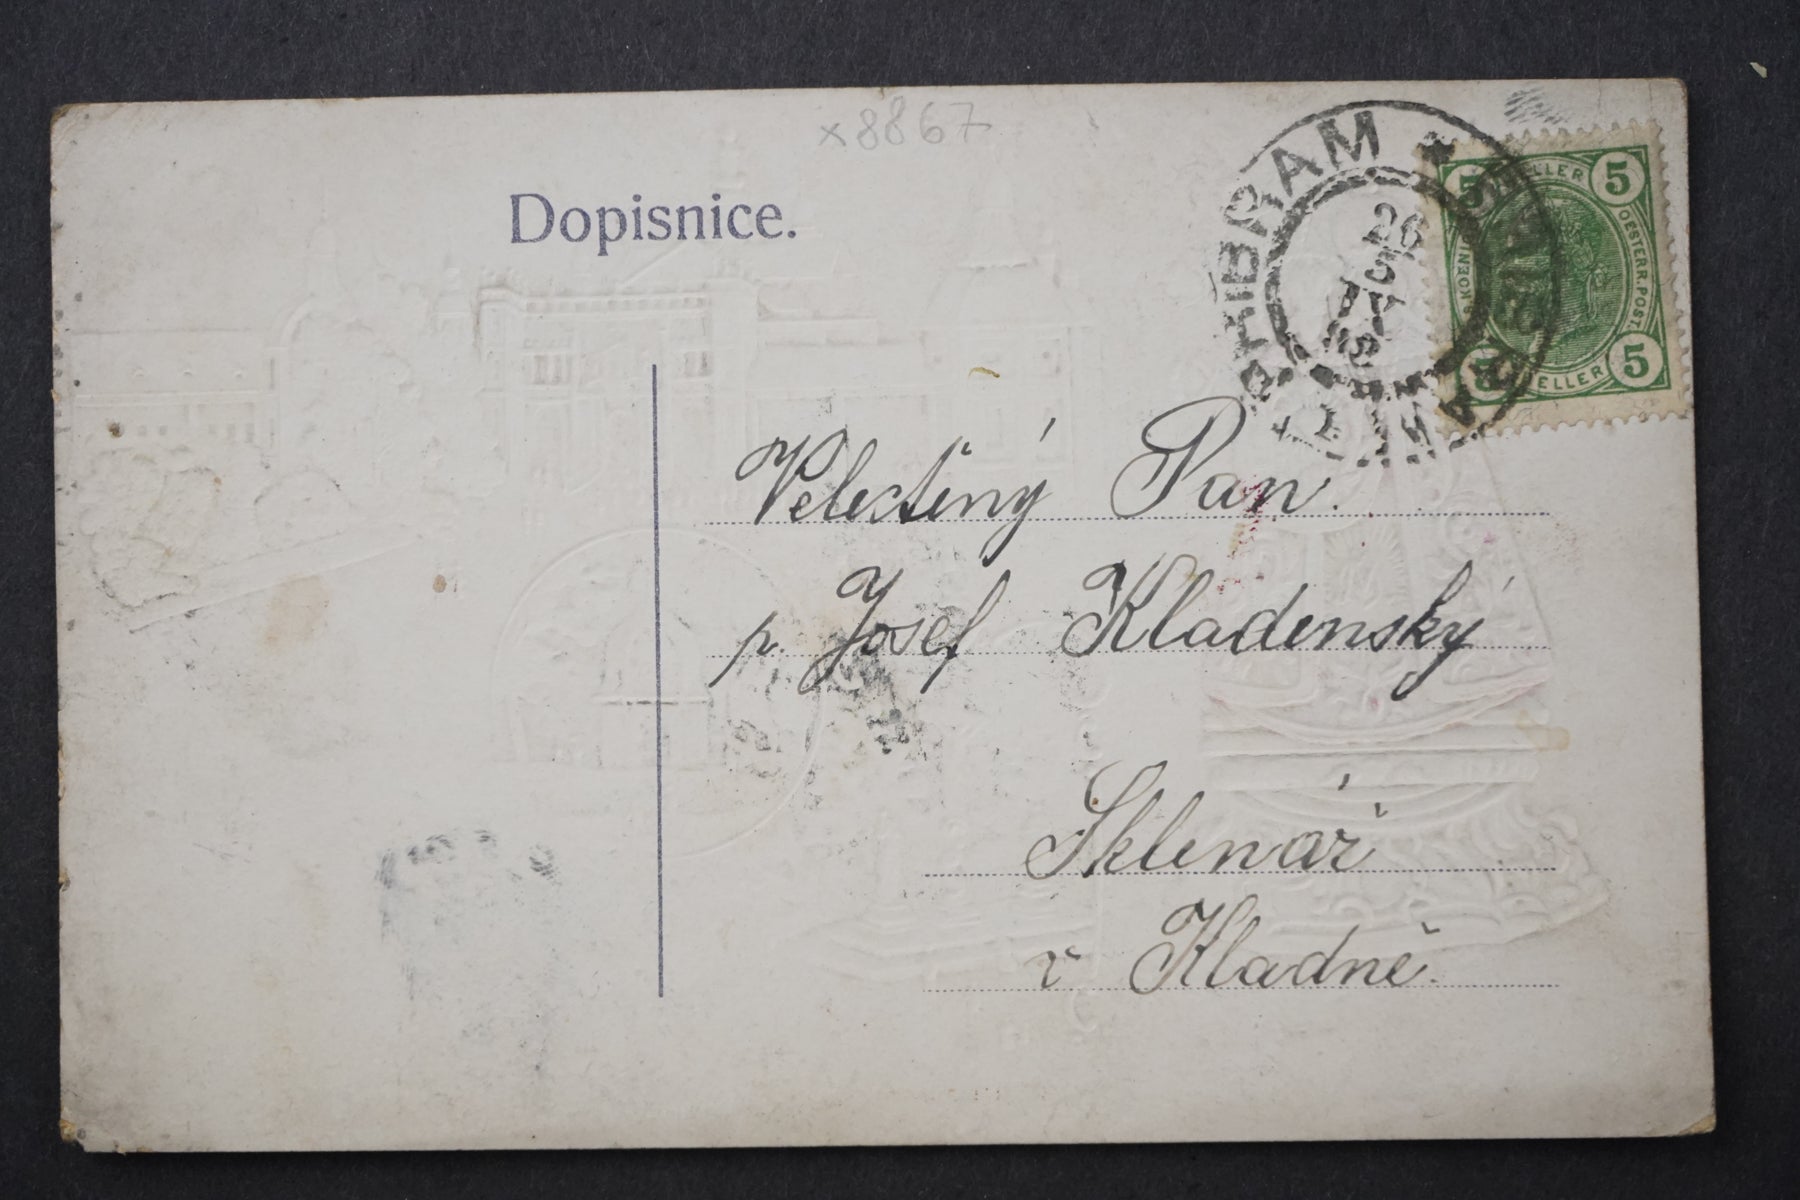 x8867
Dopisnice.
PŘIBRAM *
26
5 HELLER 5
OESTERR. POST.
5 HELLER 5
Velectěný Pan.
p. Josef Kladenský
Sklenář
v Kladně.